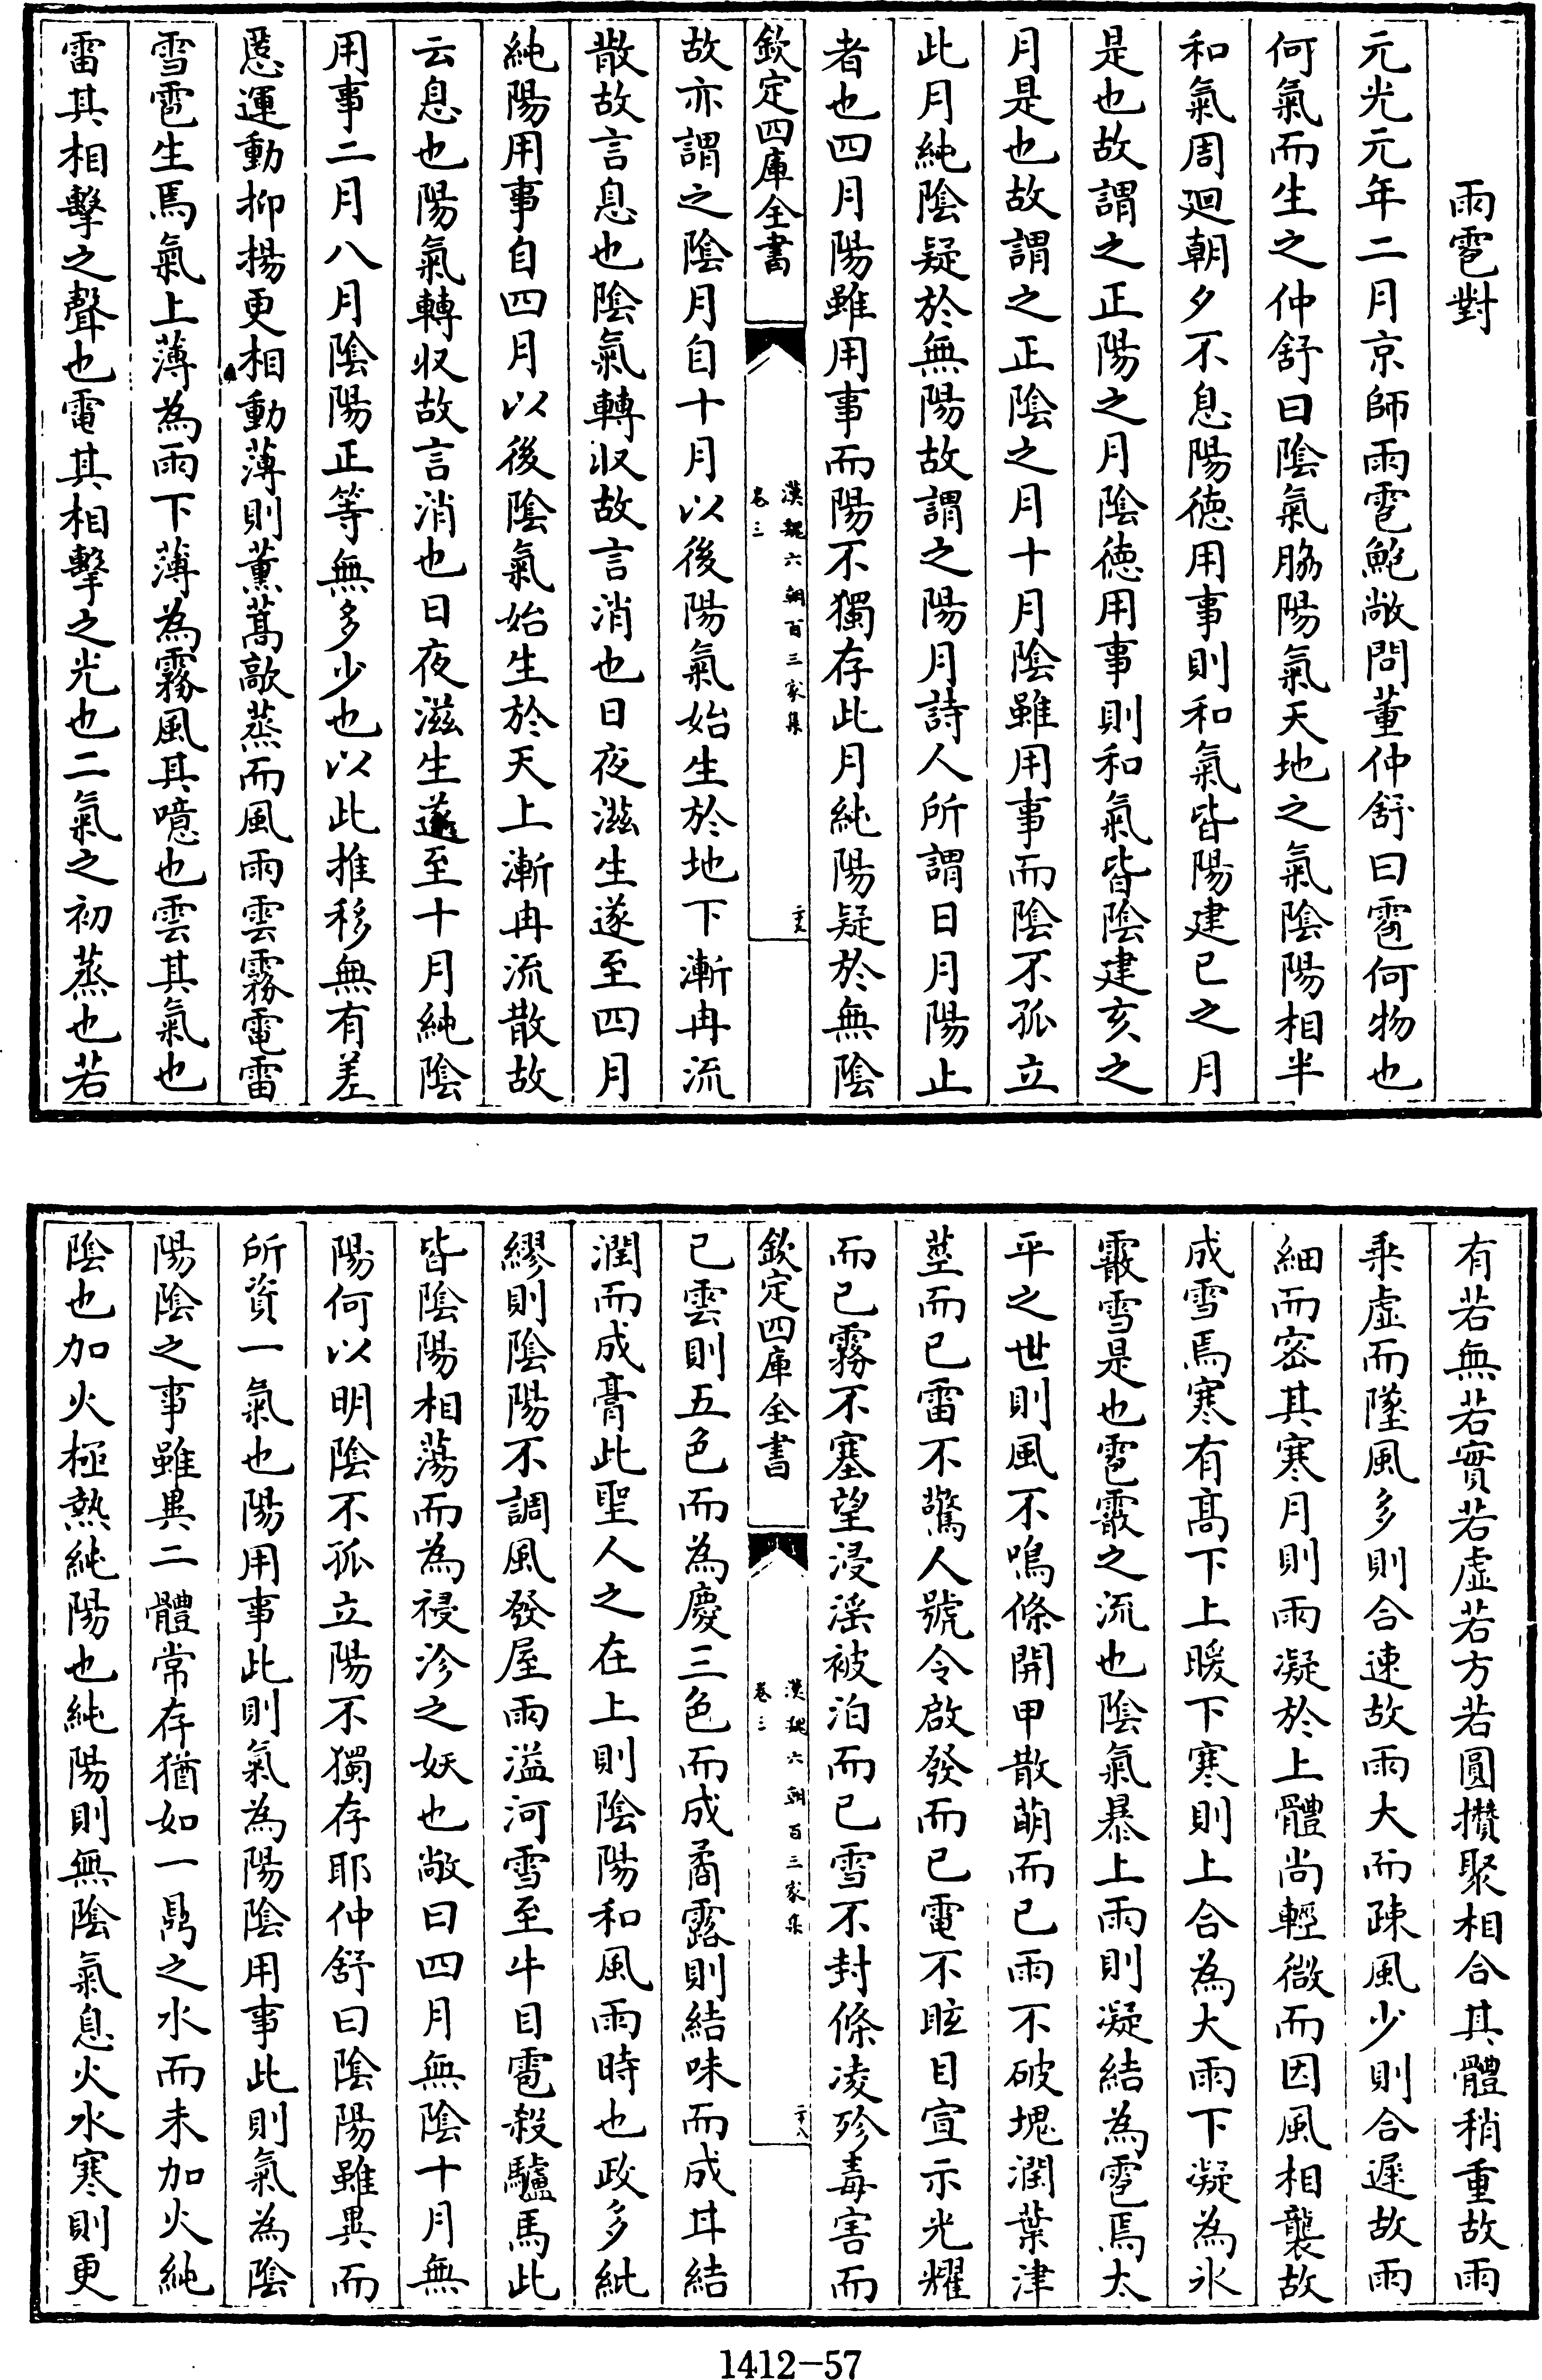 雨雹對
元光元年二月京師雨雹鮑敞問董仲舒曰雹何物也
何氣而生之仲舒曰陰氣脇陽氣天地之氣陰陽相半
和氣周廻朝夕不息陽徳用事則和氣皆陽建已之月
是也故謂之正陽之月陰徳用事則和氣皆陰建亥之
月是也故謂之正陰之月十月陰雖用事而陰不孤立
此月純陰疑於無陽故謂之陽月詩人所謂日月陽止
者也四月陽雖用事而陽不獨存此月純陽疑於無陰
欽定四庫全書
漢魏六朝百三家集
卷三
故亦謂之陰月自十月以後陽氣始生於地下漸冉流
散故言息也陰氣轉収故言消也日夜滋生遂至四月
純陽用事自四月以後陰氣始生於天上漸冉流散故
云息也陽氣轉収故言消也日夜滋生遂至十月純陰
用事二月八月陰陽正等無多少也以此推移無有差
慝運動抑揚更相動薄則薫蒿歊蒸而風雨雲霧電雷
雪雹生焉氣上薄為雨下薄為霧風其噫也雲其氣也
雷其相擊之聲也電其相擊之光也二氣之初蒸也若
有若無若實若虛若方若圓攢聚相合其體稍重故雨
乘虛而墜風多則合速故雨大而疎風少則合遲故雨
細而密其寒月則雨凝於上體尚輕微而因風相襲故
成雪焉寒有髙下上暖下寒則上合為大雨下凝為氷
霰雪是也雹霰之流也陰氣暴上雨則凝結為雹焉太
平之世則風不鳴條開甲散萌而已雨不破塊潤葉津
莖而已雷不驚人號令啟發而已電不眩目宣示光耀
而已霧不塞望浸滛被泊而已雪不封條凌殄毒害而
欽定四庫全書
漢魏六朝百三家集
卷三
二十八
已雲則五色而為慶三色而成矞露則結味而成甘結
潤而成膏此聖人之在上則陰陽和風雨時也政多紕
繆則陰陽不調風發屋雨溢河雪至牛目雹殺驢馬此
皆陰陽相蕩而為祲沴之妖也敞曰四月無陰十月無
陽何以明陰不孤立陽不獨存耶仲舒曰陰陽雖異而
所資一氣也陽用事此則氣為陽陰用事此則氣為陰
陽陰之事雖異二體常存猶如一鼎之水而未加火純
陰也加火極熱純陽也純陽則無陰氣息火水寒則更
1412-57